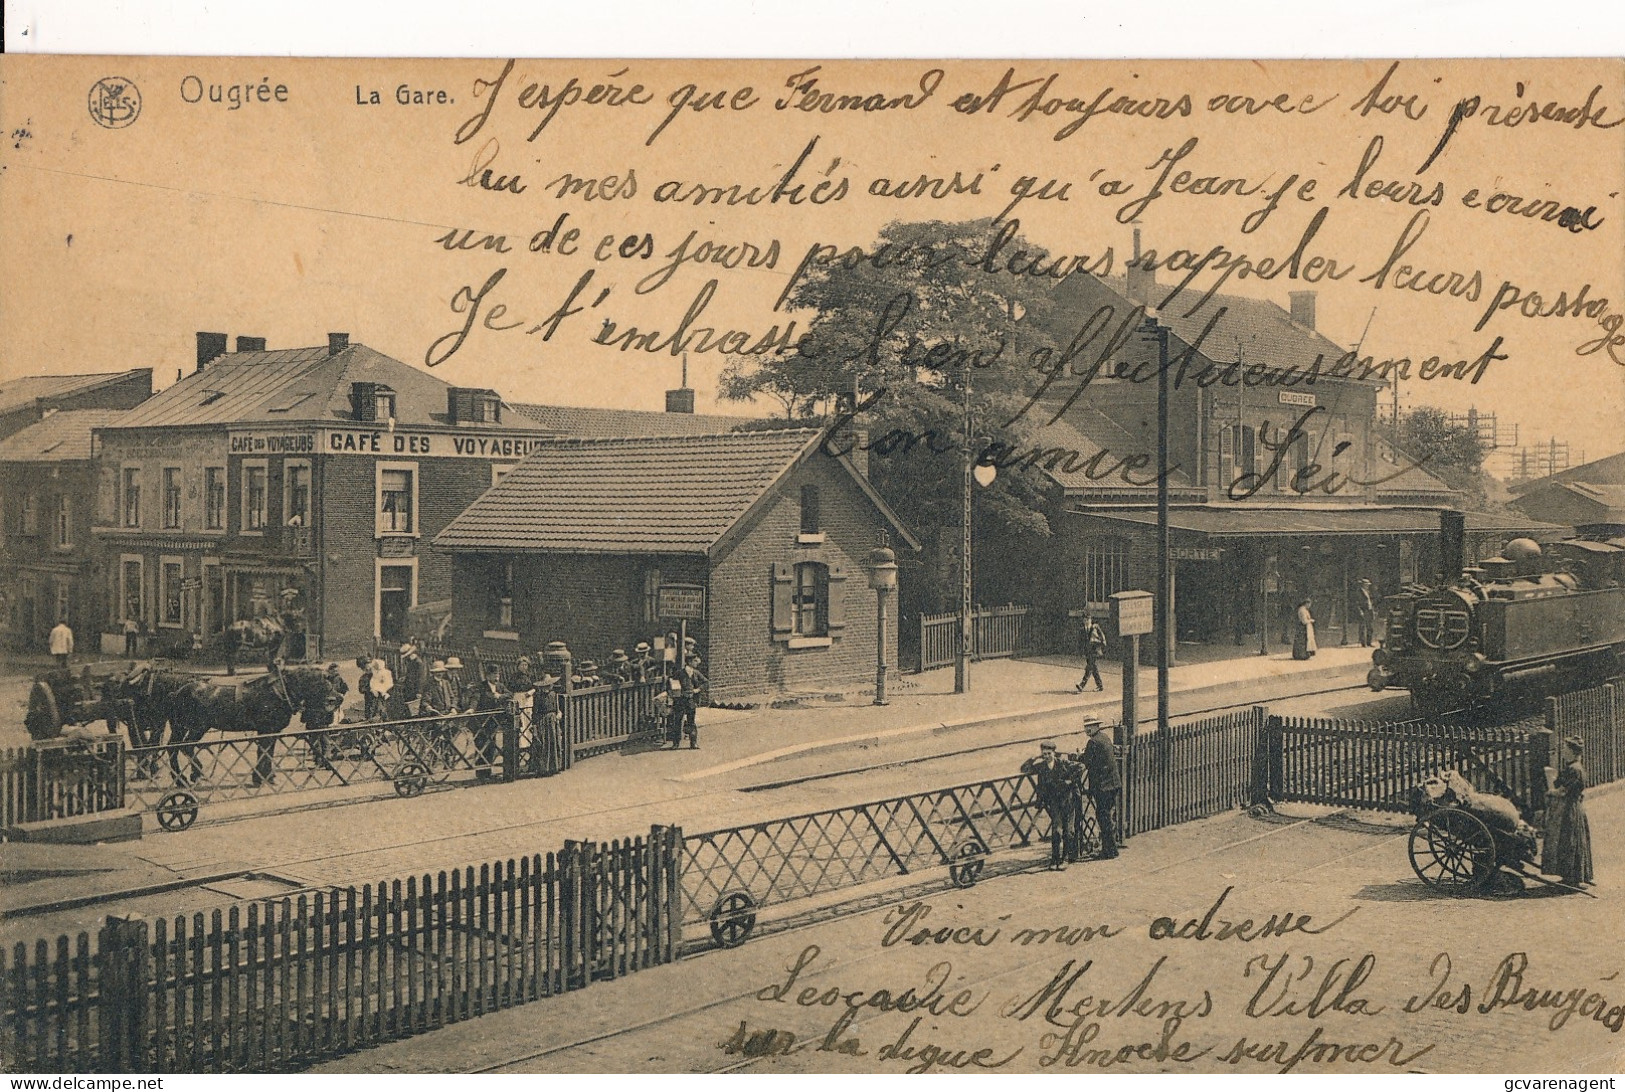 Ougrée La Gare.
J'espère que Fernand est toujours avec toi présente
lui mes amitiés ainsi qu'a Jean je leurs écrirai
un de ces jours pour leurs rappeler leurs
Je t'embrasse bien affectueusement
Ton amie Léo
CAFÉ DES VOYAGEURS
CAFÉ DES VOYAGEU
OUGRÉE
SORTIE
Voici mon adresse
Léocadie Mertens Villa des Bruyéres
sur la digue Knocke sur/mer
delcampe.net
gcvarenagent